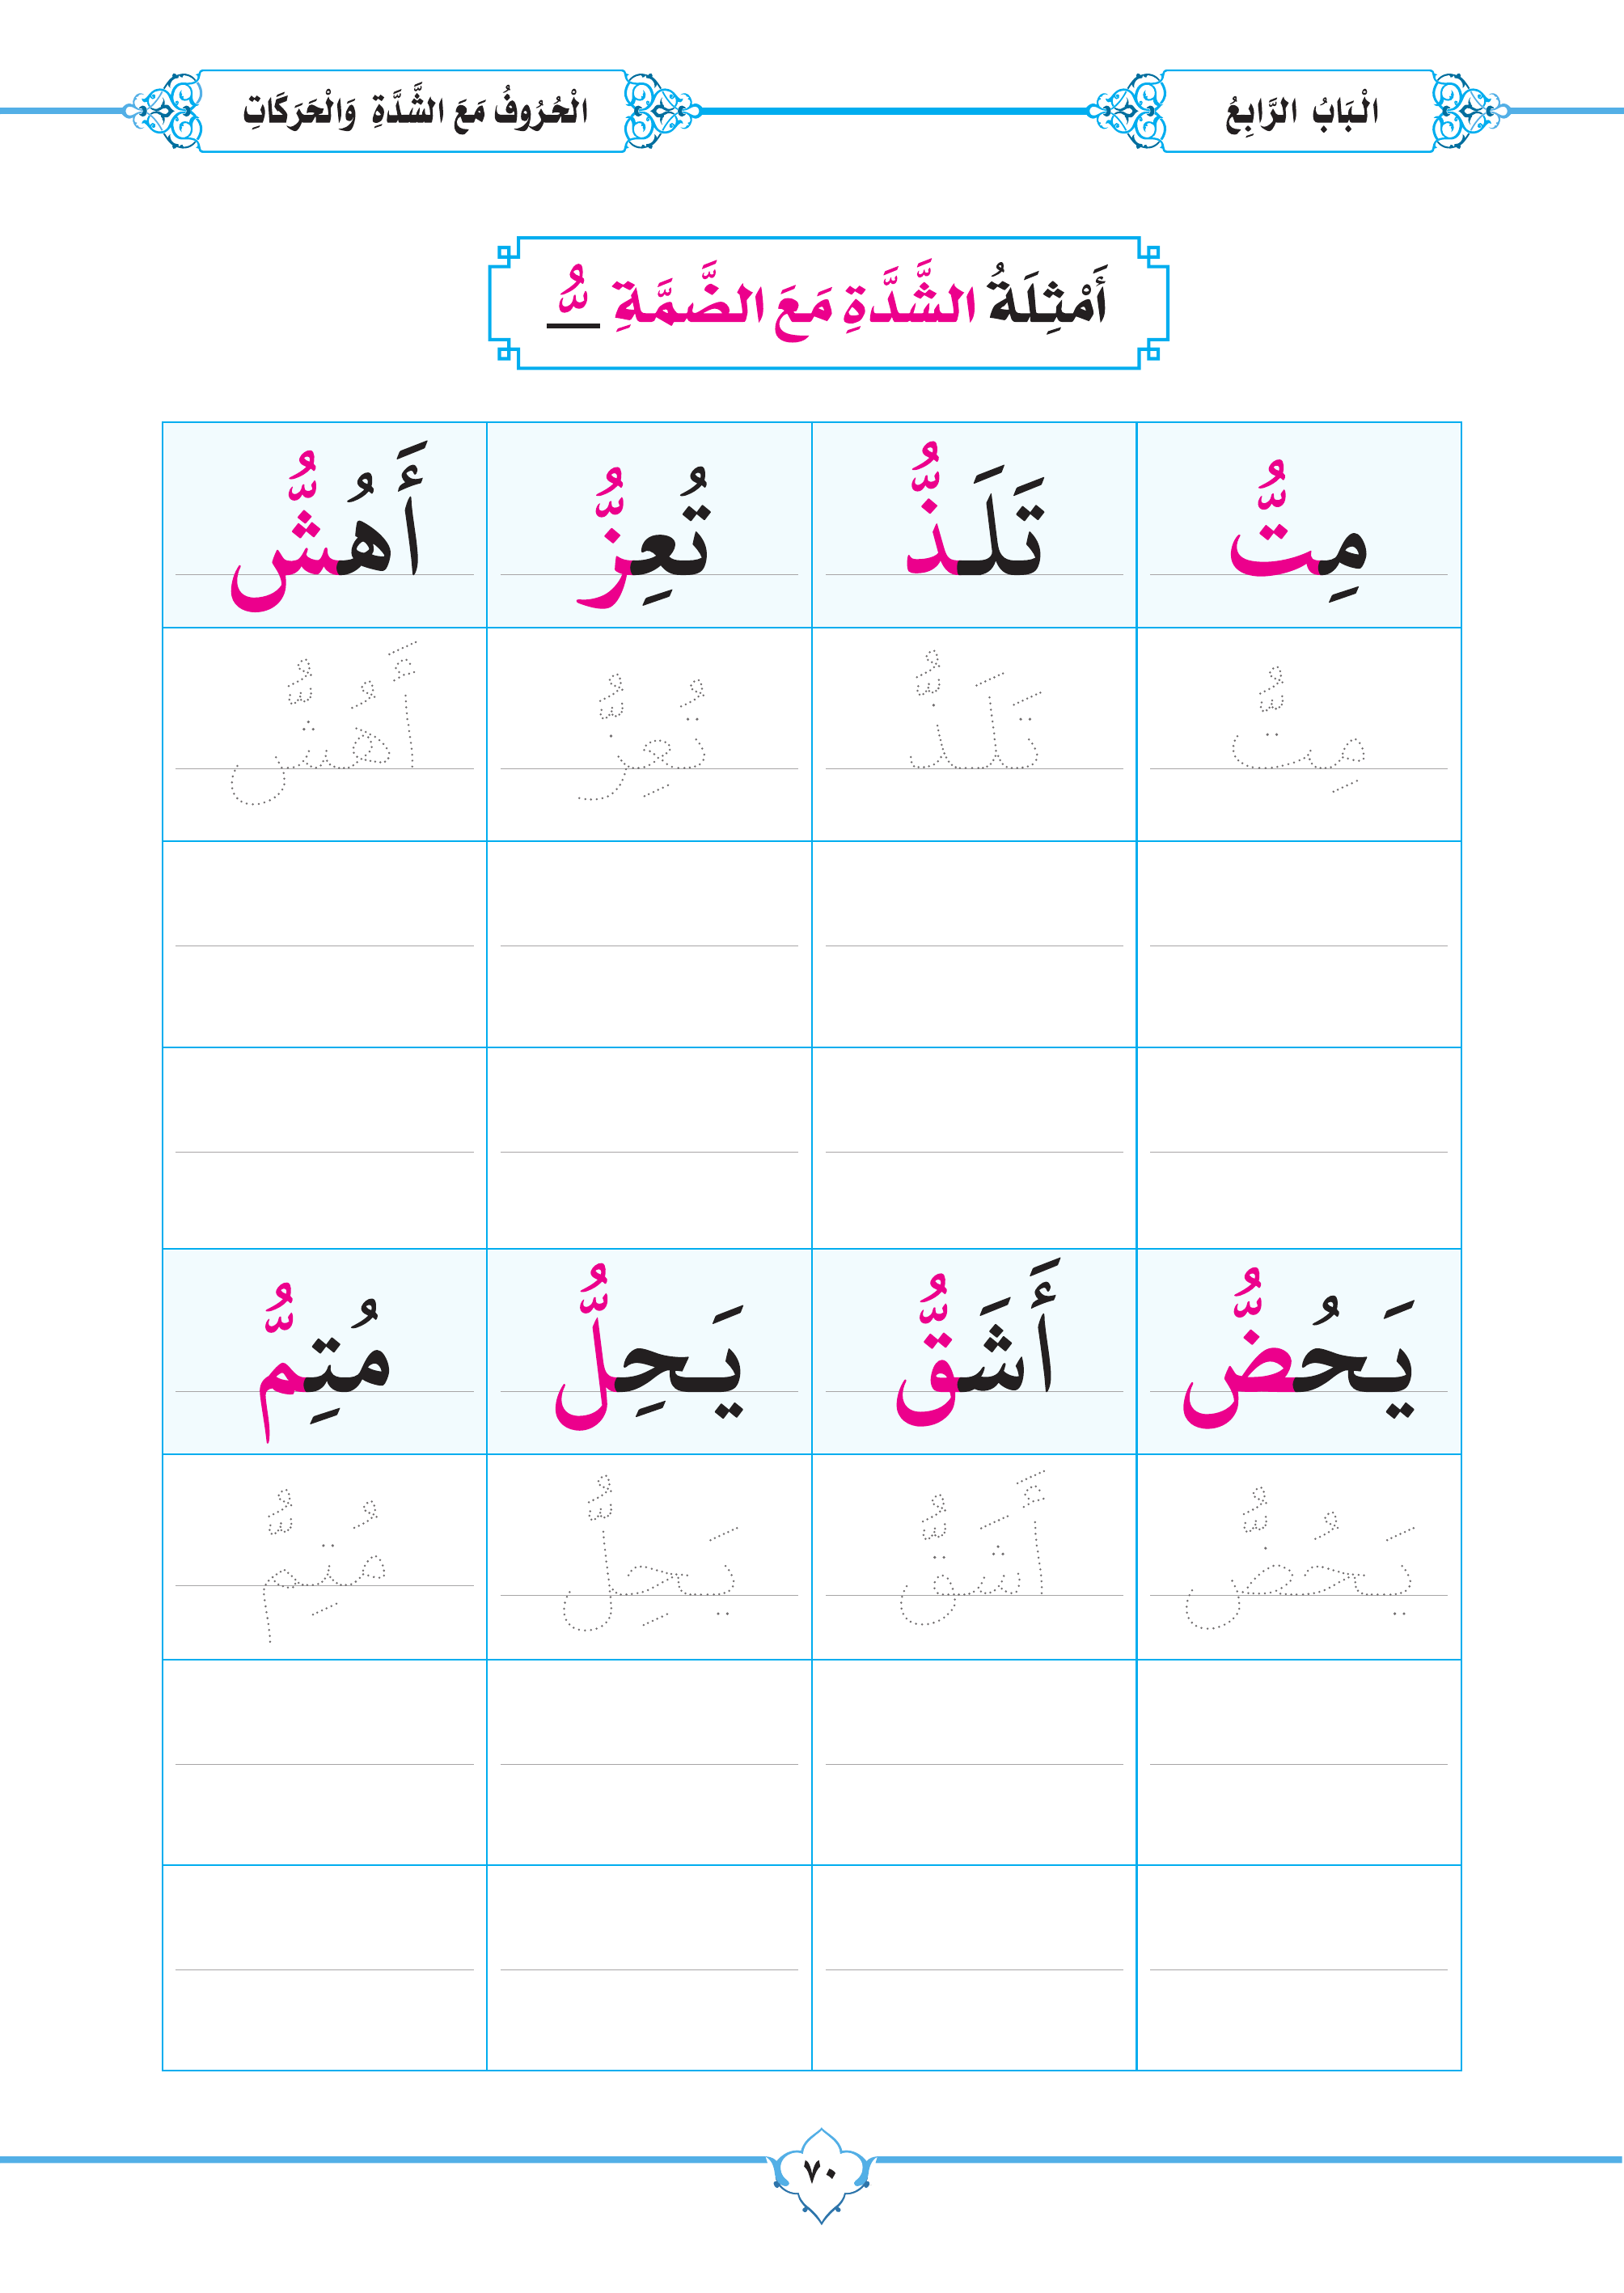 الْبَابُ الرَّابِعُ
الْحُرُوفُ مَعَ الشَّدَّةِ وَالْحَرَكَاتِ
أَمْثِلَةُ الشَّدَّةِ مَعَ الضَّمَّةِ ـُّ
مِتُّ تَلَذُّ تُعِزُّ أَهُشُّ
مِتُّ تَلَذُّ تُعِزُّ أَهُشُّ
يَحُضُّ أَشَقُّ يَحِلُّ مُتِمُّ
يَحُضُّ أَشَقُّ يَحِلُّ مُتِمُّ
٧٠